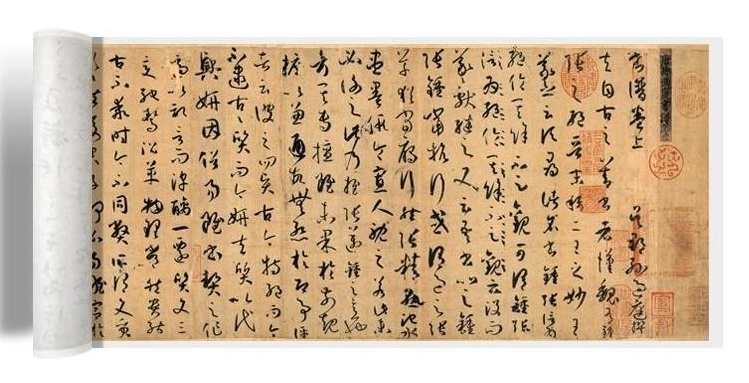 書譜卷上 吳郡孫過庭撰
夫自古之善書者漢魏有鍾
張之絕晉末稱二王之妙王
羲之云頃尋諸名書鍾張信為
絕倫其餘不足觀可謂鍾張
信為絕倫其餘不足觀云沒而
羲獻繼之又云吾書比之鍾
張鍾當抗行或謂過之張
草猶當雁行然張精熟池水
盡墨假令寡人耽之若此未
必謝之此乃推張邁鍾之意
也考其專擅雖未果於前規
摭以兼通故無慚於即事評
者云彼之四賢古今特絕而今
不逮古古質而今妍夫質以代
興妍因俗易雖書契之作
適以記言而淳醨一遷質文三
變馳鶩沿革物理常然貴能
古不乖時今不同弊所謂文質